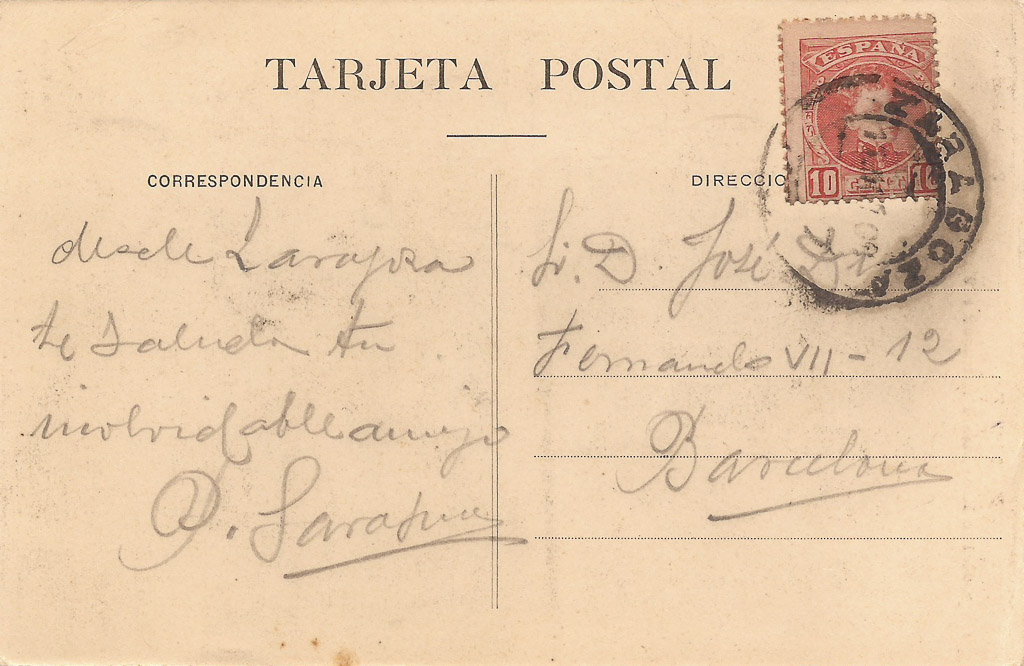 TARJETA POSTAL
ESPAÑA
10 CENT 10
ZARAGOZA
CORRESPONDENCIA
desde Zaragoza
te saluda tu
inolvidable amigo
P.
DIRECCIO
Sr. D. José
Fernando VII - 12
Barcelona